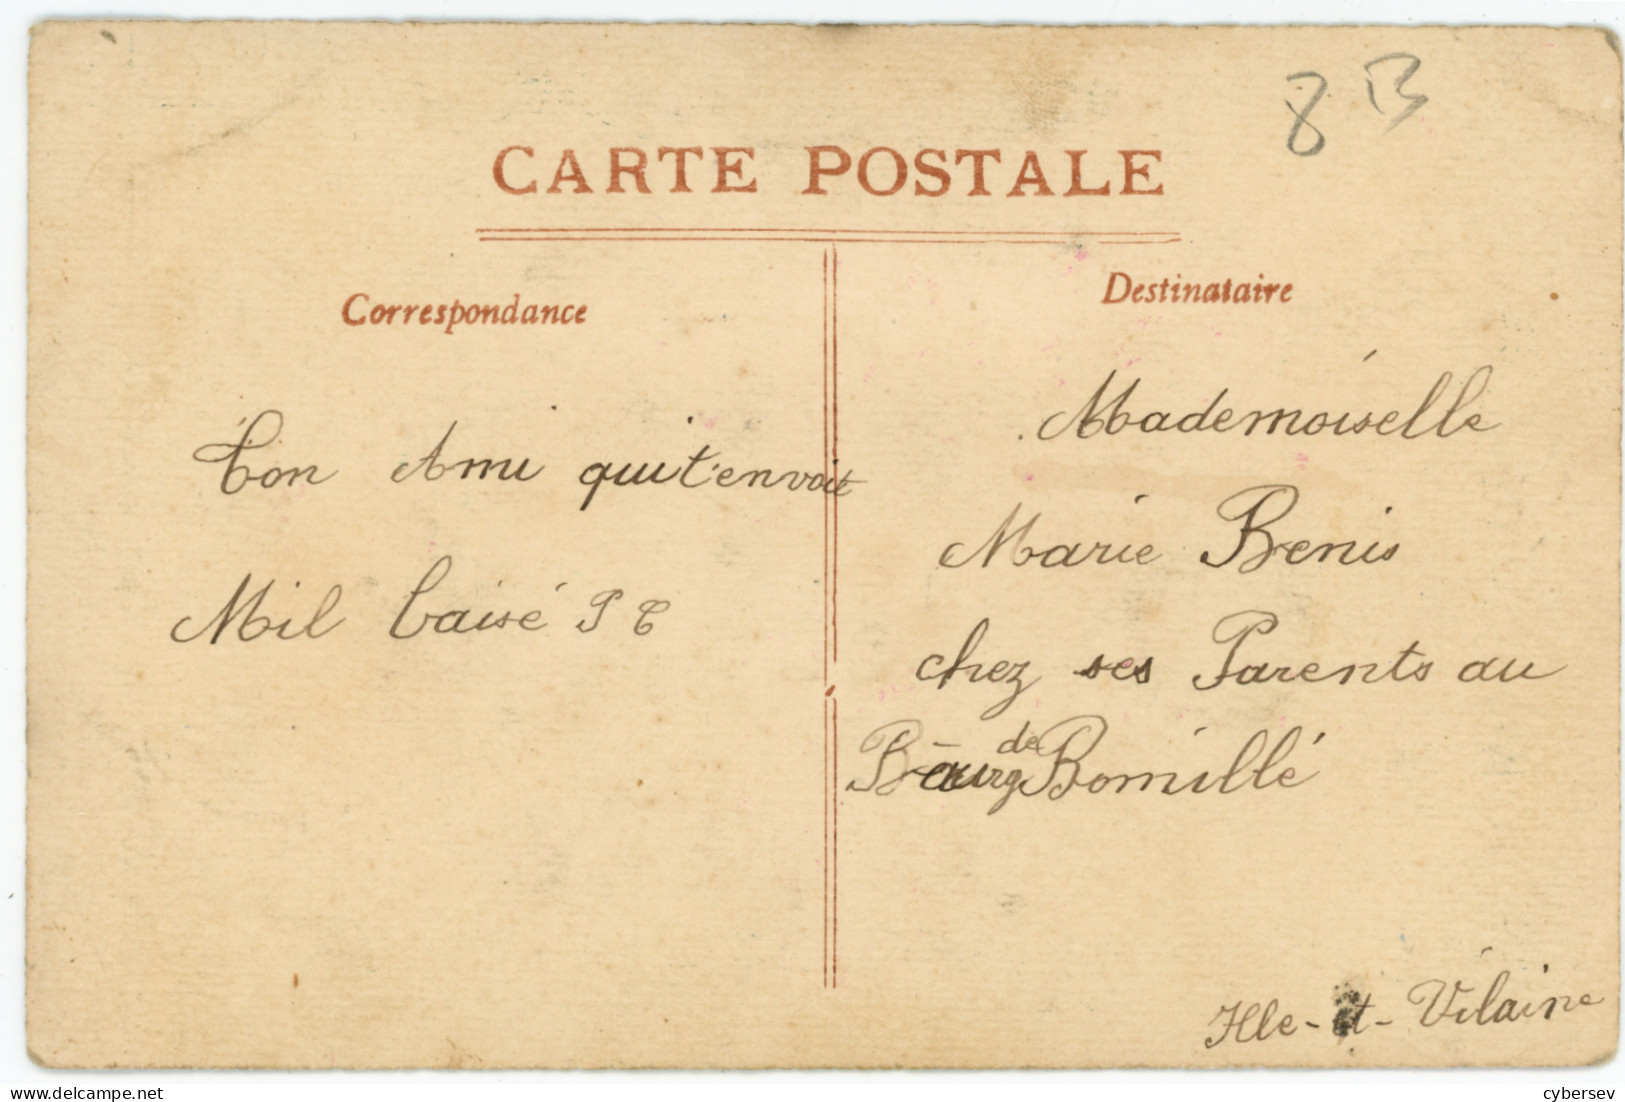 8 B
CARTE POSTALE
Correspondance
Ton Ami qui t'envoit
Mil baisé P T
Destinataire
Mademoiselle
Marie Benis
chez ses Parents au
Bourg de Bomillé
Ille-et-Vilaine
delcampe.net
cybersev